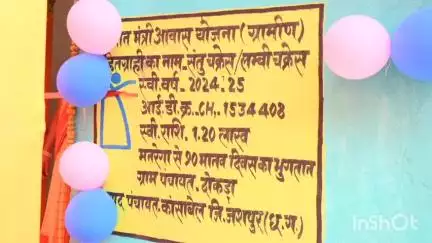 मंत्री आवास योजना (ग्रामीण)
हितग्राही का नाम - संतु चक्रेस / लम्बी चक्रेस
स्वी. वर्ष - 2024-25
आई.डी.क्र. CH. 1534408
स्वी. राशि. 1.20 लाख
मनरेगा से 90 मानव दिवस का भुगतान
ग्राम पंचायत. टोकड़ा
पंचायत. कांसाबेल जि. जशपुर (छ.ग.)
InShOt